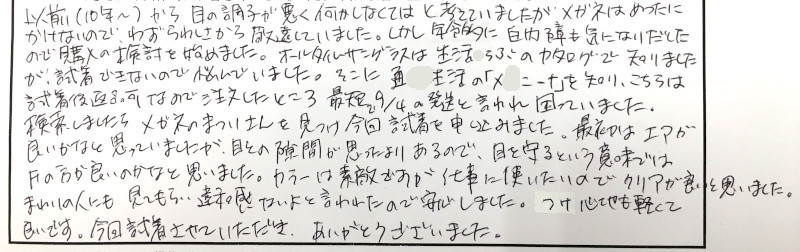 以前(10年~)から目の調子が悪く何かしなくてはと考えていましたがメガネはめったに
かけないので、わずらわしさから敬遠していました。しかし年令的に白内障も気になりだした
ので購入の検討を始めました。オールタイムサングラスは生活 らぶのカタログで知りました
が、試着できないので悩んでいました。そこに通 生活の「メ ニーナ」を知り、こちらは
試着後返品可なので注文したところ最短で9/4の発送と言われ困っていました。
検索しましたらメガネのまついさんを見つけ今回試着を申し込みました。最初はエアが
良いかなと思っていましたが、目との隙間が思ったよりあるので、目を守るという意味では
Fの方が良いのかなと思いました。カラーは素敵ですが仕事に使いたいのでクリアが良いと思いました。
まわりの人にも見てもらい違和感ないよと言われたので安心しました。つけ心地も軽くて
良いです。今回試着させていただき、ありがとうございました。